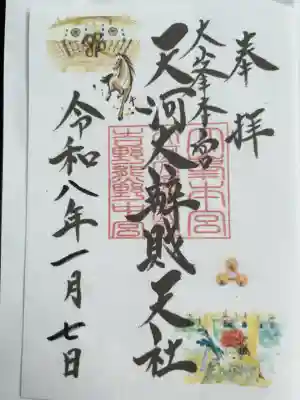 奉拝
大峯本宮
天河大辨財天社
吉野熊野中宮
令和八年一月七日